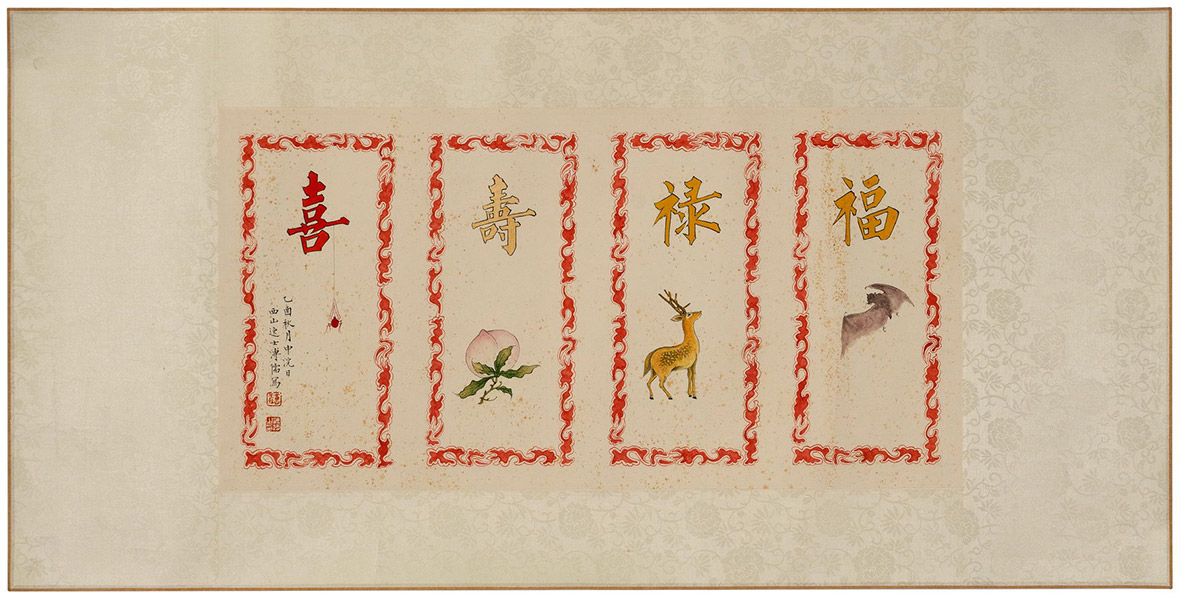 福
禄
壽
喜
乙酉秋月中浣日
西山逸士溥儒寫